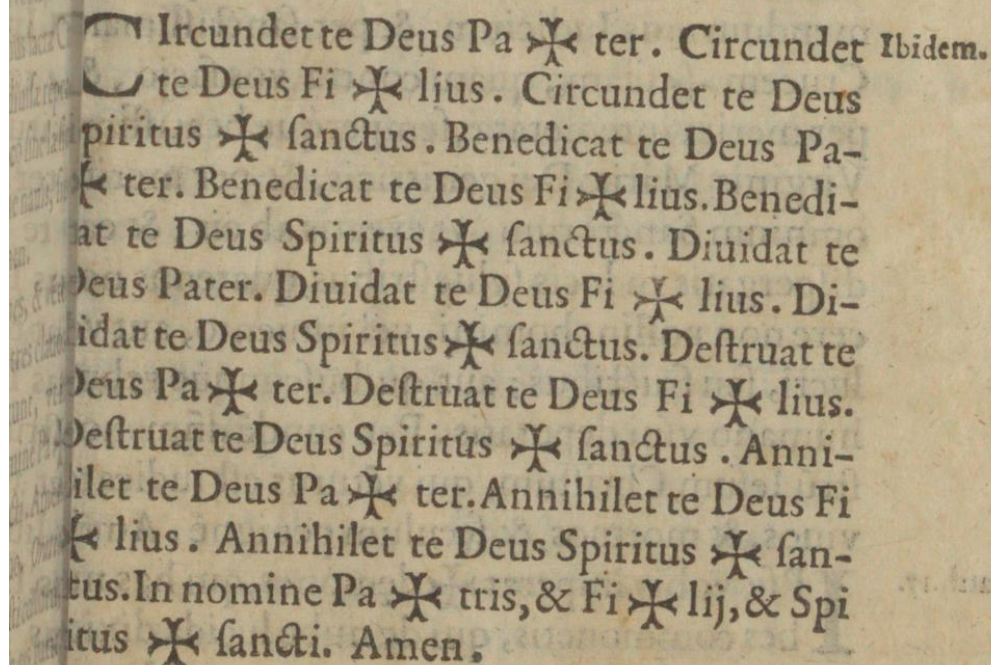 CIrcundet te Deus Pa ✠ ter. Circundet Ibidem.
te Deus Fi ✠ lius. Circundet te Deus
piritus ✠ ſanctus. Benedicat te Deus Pa-
✠ ter. Benedicat te Deus Fi ✠ lius. Benedi-
at te Deus Spiritus ✠ ſanctus. Diuidat te
Deus Pater. Diuidat te Deus Fi ✠ lius. Di-
idat te Deus Spiritus ✠ ſanctus. Deſtruat te
Deus Pa ✠ ter. Deſtruat te Deus Fi ✠ lius.
Deſtruat te Deus Spiritus ✠ ſanctus. Anni-
ilet te Deus Pa ✠ ter. Annihilet te Deus Fi
✠ lius. Annihilet te Deus Spiritus ✠ ſan-
tus. In nomine Pa ✠ tris, & Fi ✠ lij, & Spi
itus ✠ ſancti. Amen.